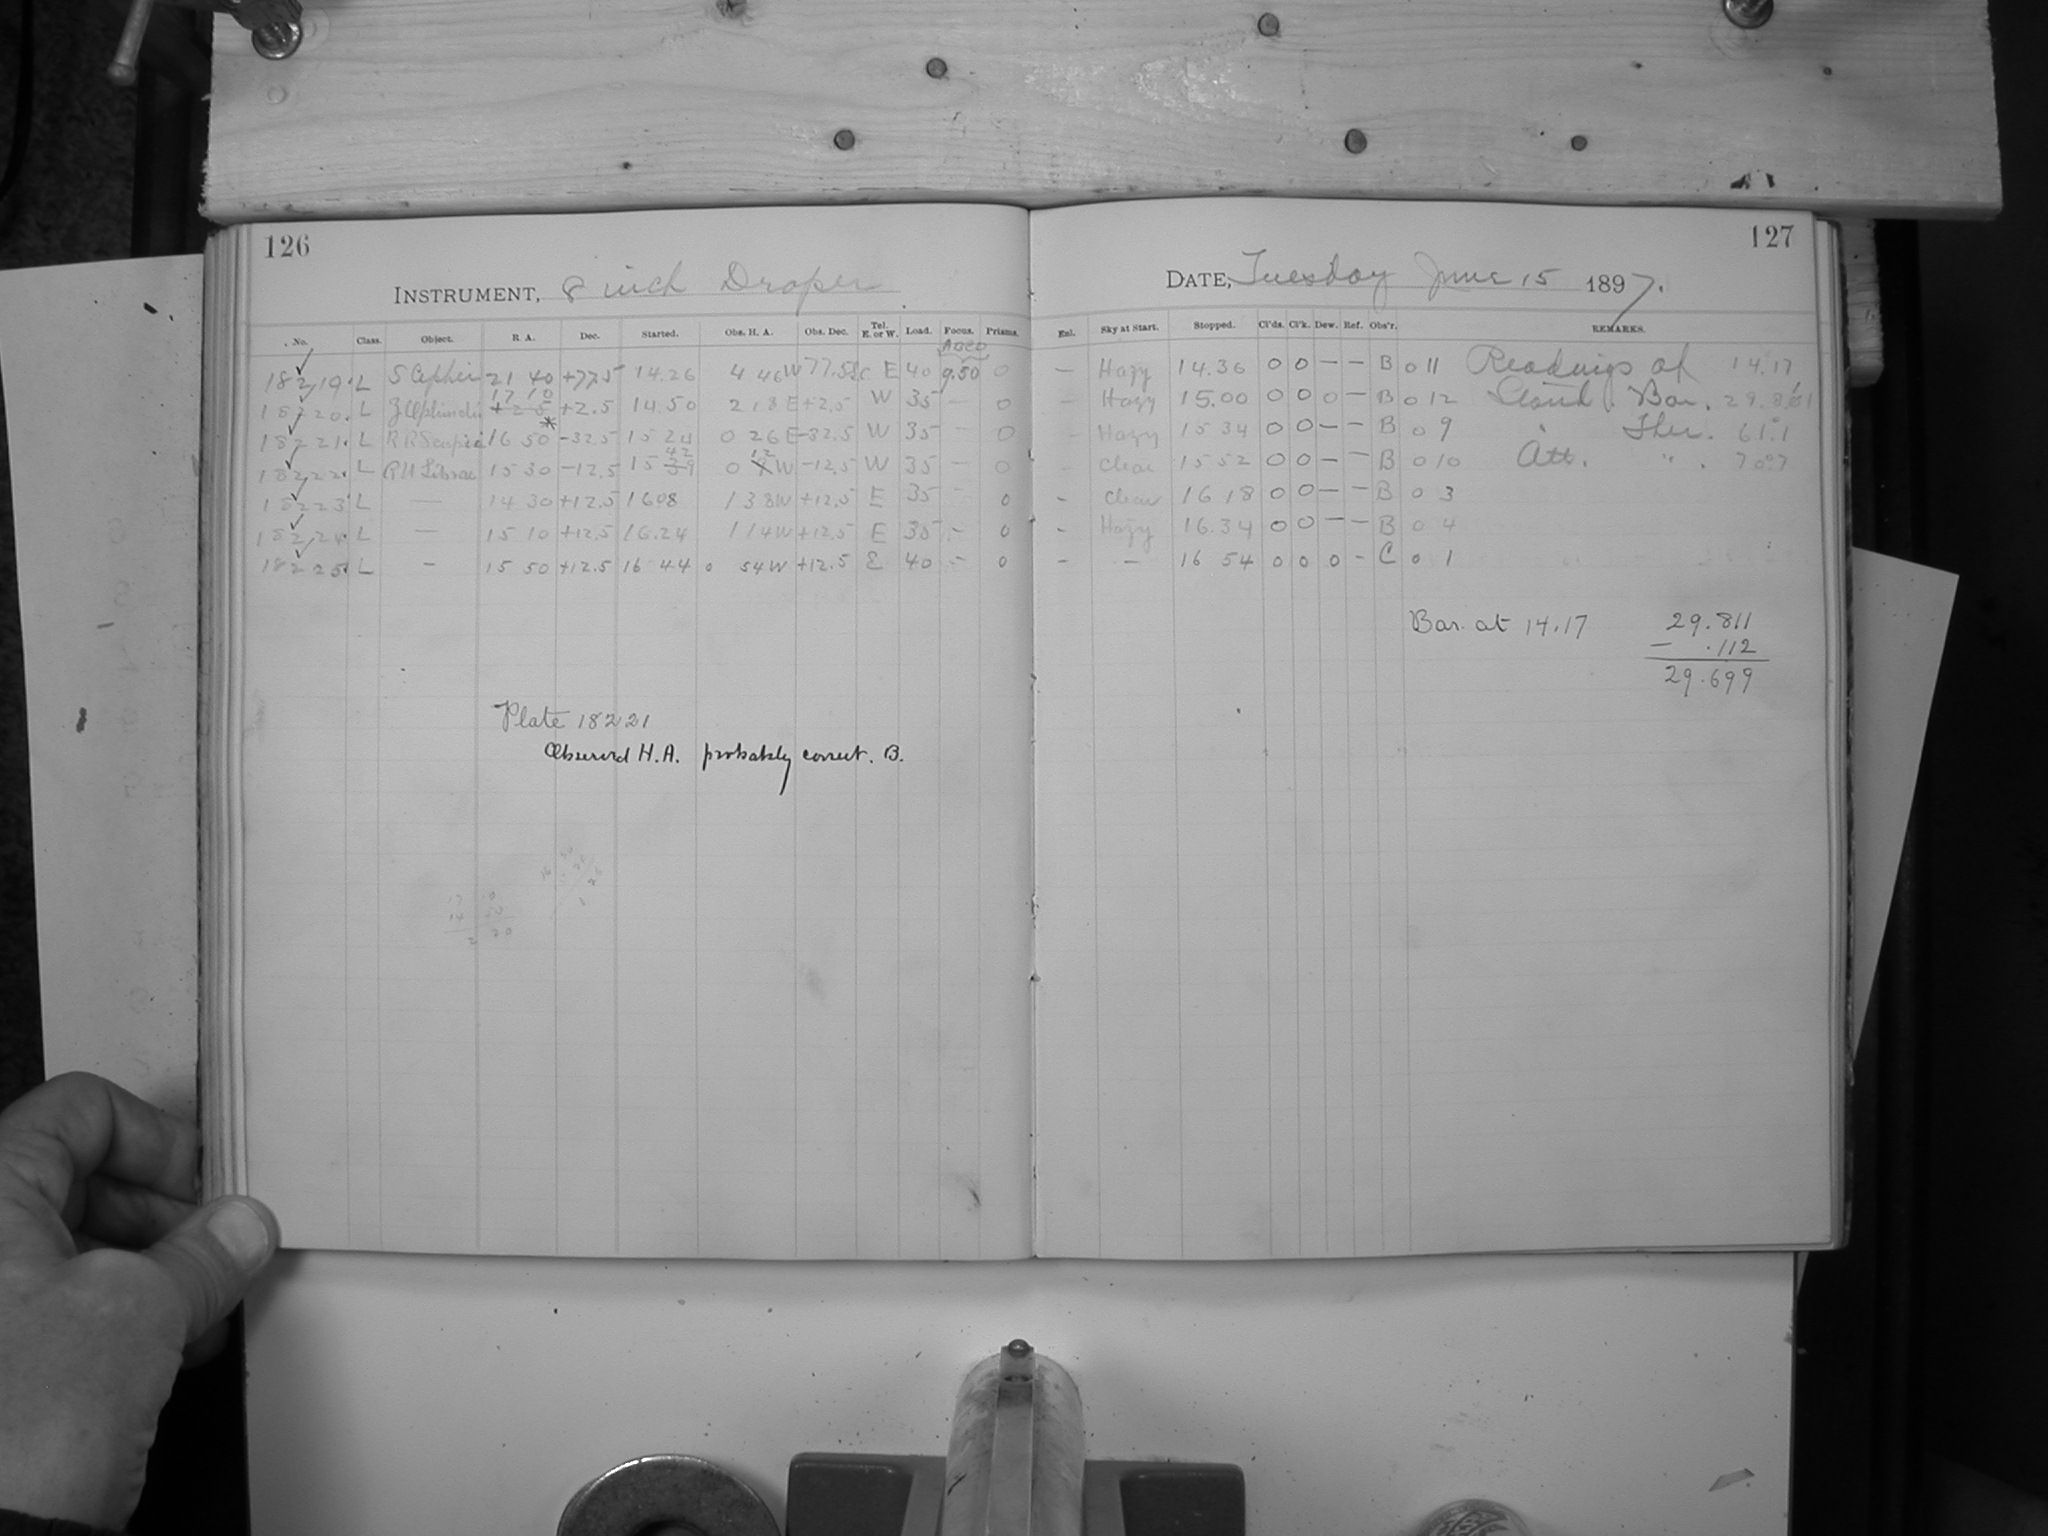 126
INSTRUMENT, 8 inch Draper
No. Class. Object. R. A. Dec. Started. Obs. H. A. Obs. Dec. Tel. E. or W. Load. Focus. Prisms.
ABCD
18219 L S Cephei 21 40 +77.5 14.26 4 46 W 77.5 E 40 9.50 0
17 10
18220 L +2.5 +2.5 14.50 2 18 E +2.5 W 35 - 0
18221 L RR Scorpii 16 50* -32.5 15 24 0 26 E -32.5 W 35 - 0
42 12
18222 L RU Librae 15 30 -12.5 15 0 W -12.5 W 35 - 0
18223 L — 14 30 +12.5 16 08 1 38 W +12.5 E 35 - 0
18224 L — 15 10 +12.5 16.24 1 14 W +12.5 E 35 - 0
18225 L - 15 50 +12.5 16 44 0 54 W +12.5 E 40 - 0
Plate 18221
Observed H.A. probably correct. B.
17 10
14 50
2 20
127
DATE, Tuesday June 15 1897.
Enl. Sky at Start. Stopped. Cl'ds. Cl'k. Dew. Ref. Obs'r. REMARKS.
- Hazy 14.36 0 0 - - B 0 11 Readings of 14.17
- Hazy 15.00 0 0 0 - B 0 12 Bar.
- Hazy 15 34 0 0 - - B 0 9 Ther. 61.1
- Clear 15 52 0 0 - - B 0 10 Att. " . 70.7
- Clear 16 18 0 0 - - B 0 3
- Hazy 16.34 0 0 - - B 0 4
- - 16 54 0 0 0 - C 0 1
Bar. at 14.17 29.811
- .112
29.699